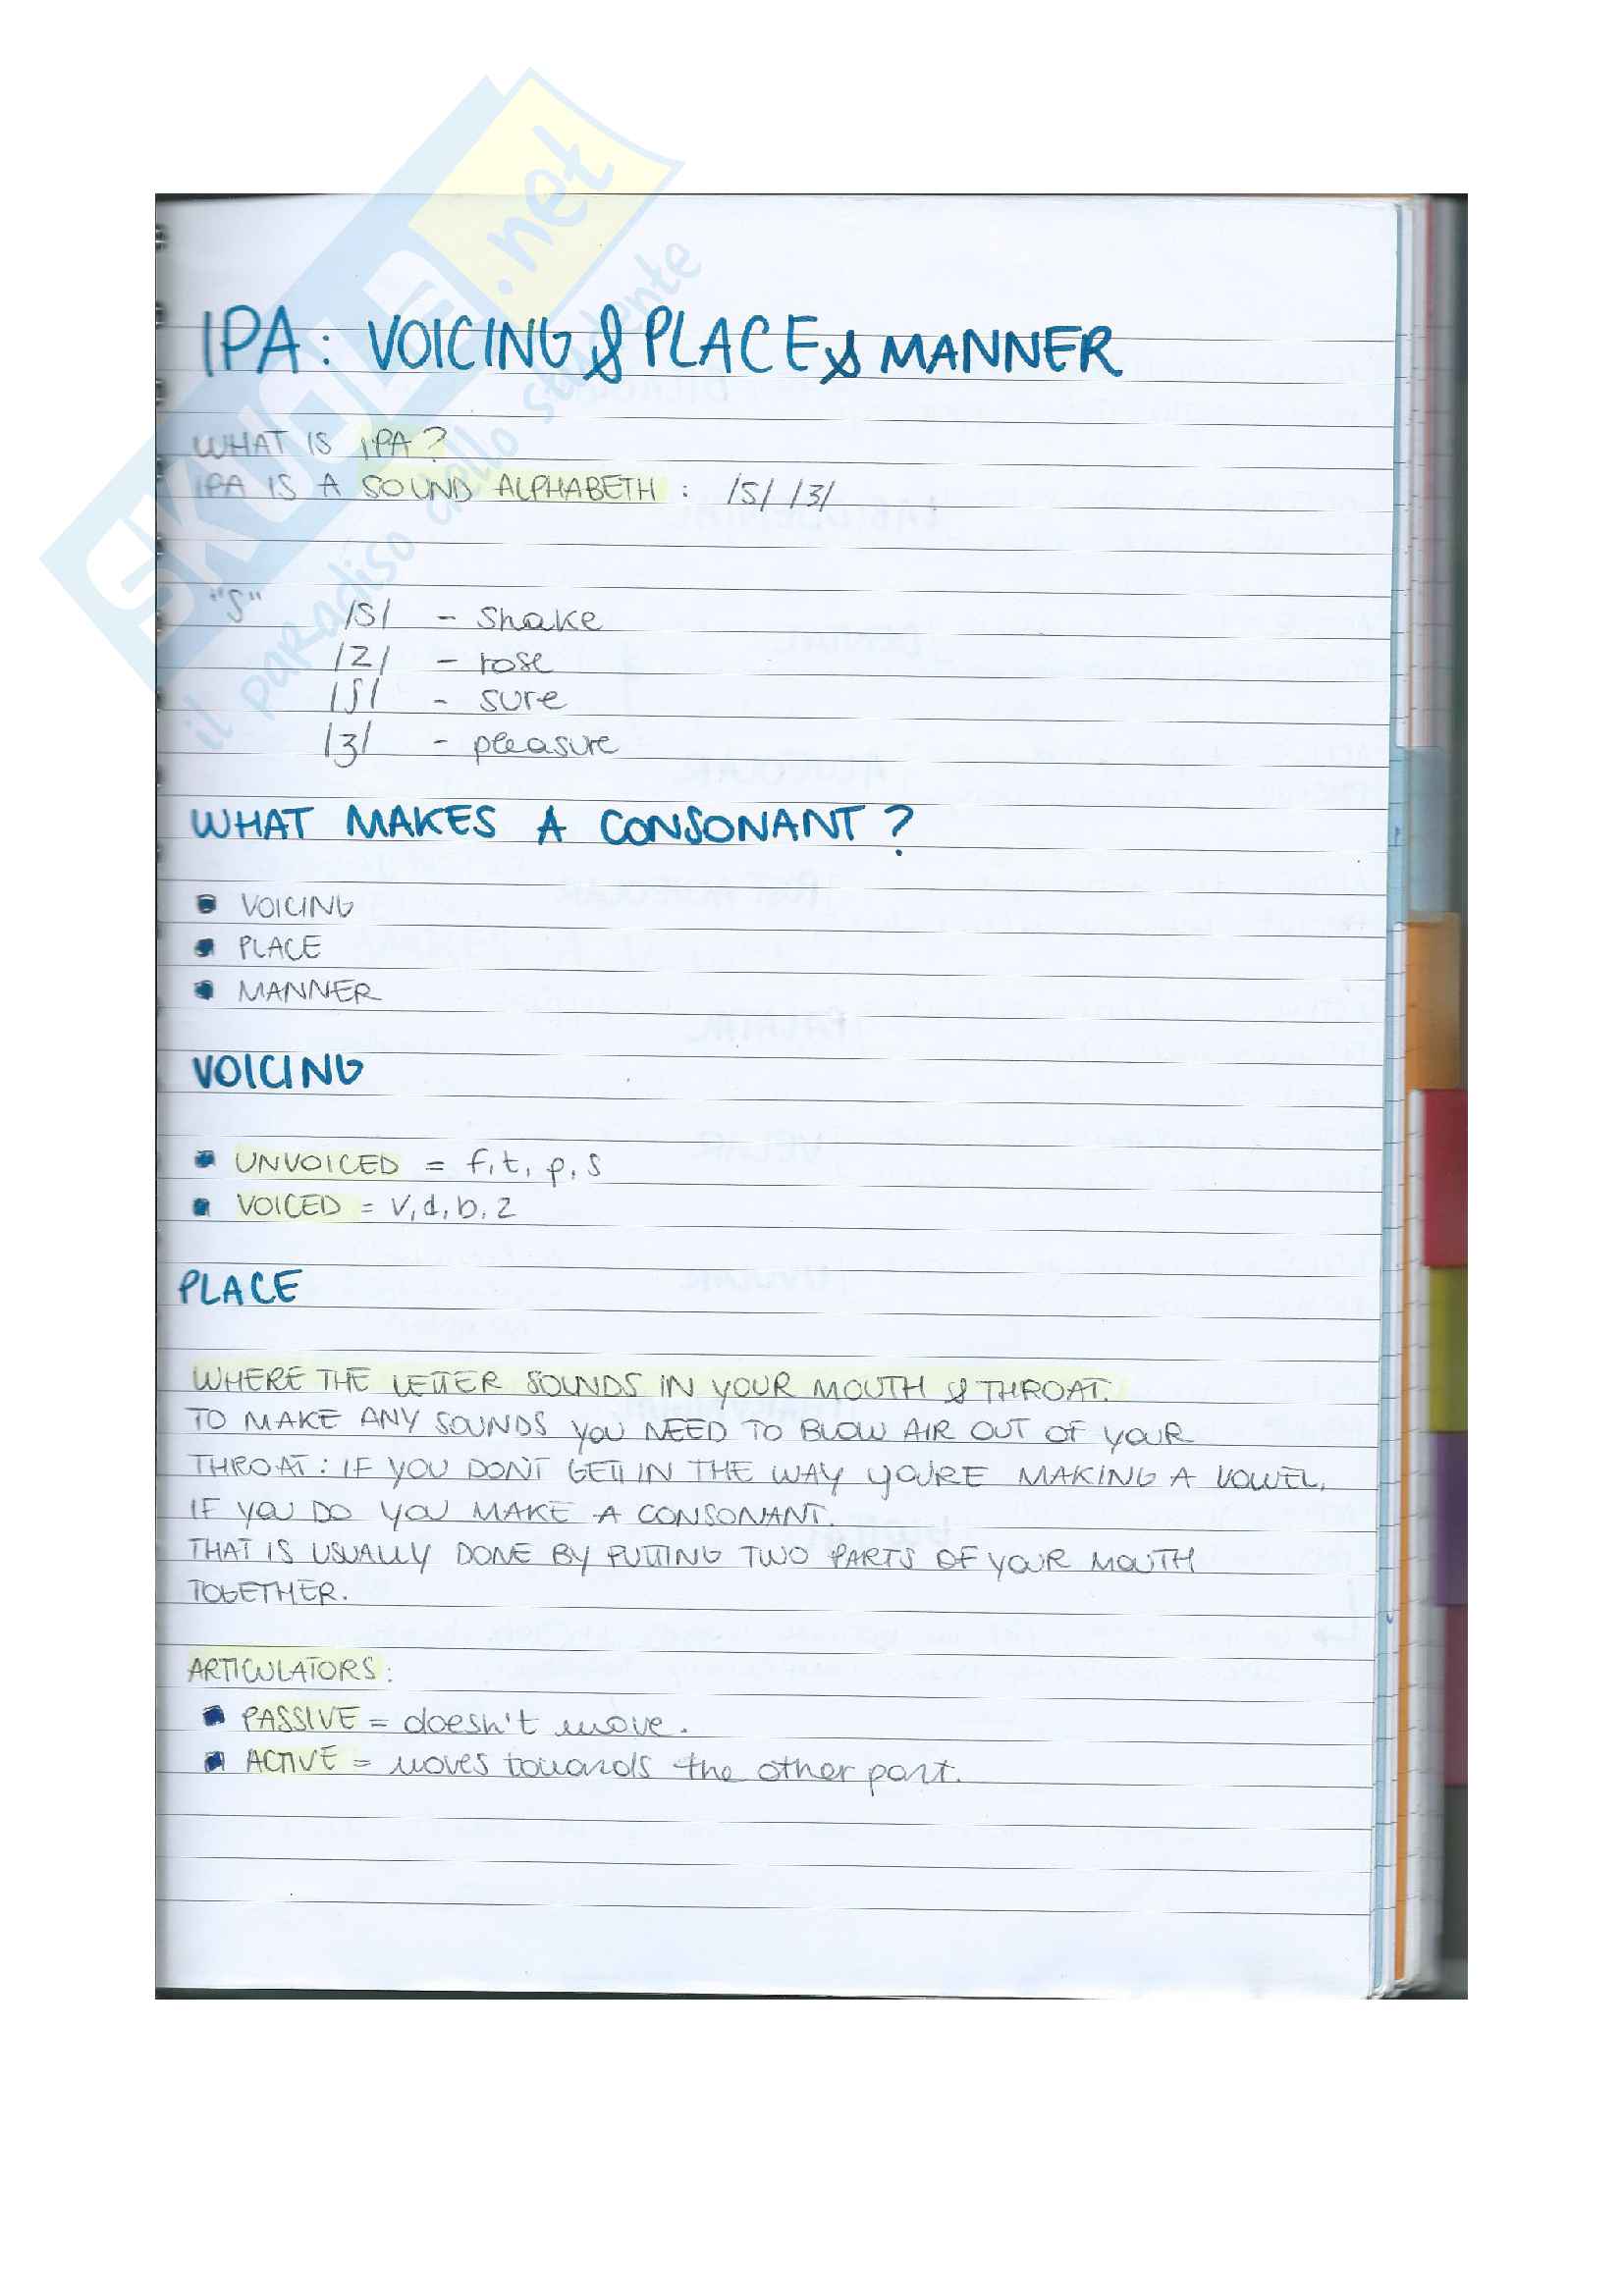 SKUOLA.net
il paradiso dello studente
IPA: VOICING & PLACE & MANNER
WHAT IS IPA?
IPA IS A SOUND ALPHABETH : /S/ /3/
"S" /S/ - Shake
/Z/ - rose
/ʃ/ - sure
/ʒ/ - pleasure
WHAT MAKES A CONSONANT?
• VOICING
• PLACE
• MANNER
VOICING
• UNVOICED = f, t, p, s
• VOICED = v, d, b, z
PLACE
WHERE THE LETTER SOUNDS IN YOUR MOUTH & THROAT.
TO MAKE ANY SOUNDS YOU NEED TO BLOW AIR OUT OF YOUR
THROAT: IF YOU DON'T GET IN THE WAY YOU'RE MAKING A VOWEL,
IF YOU DO YOU MAKE A CONSONANT.
THAT IS USUALLY DONE BY PUTTING TWO PARTS OF YOUR MOUTH
TOGETHER.
ARTICULATORS:
• PASSIVE = doesn't move.
• ACTIVE = moves towards the other part.